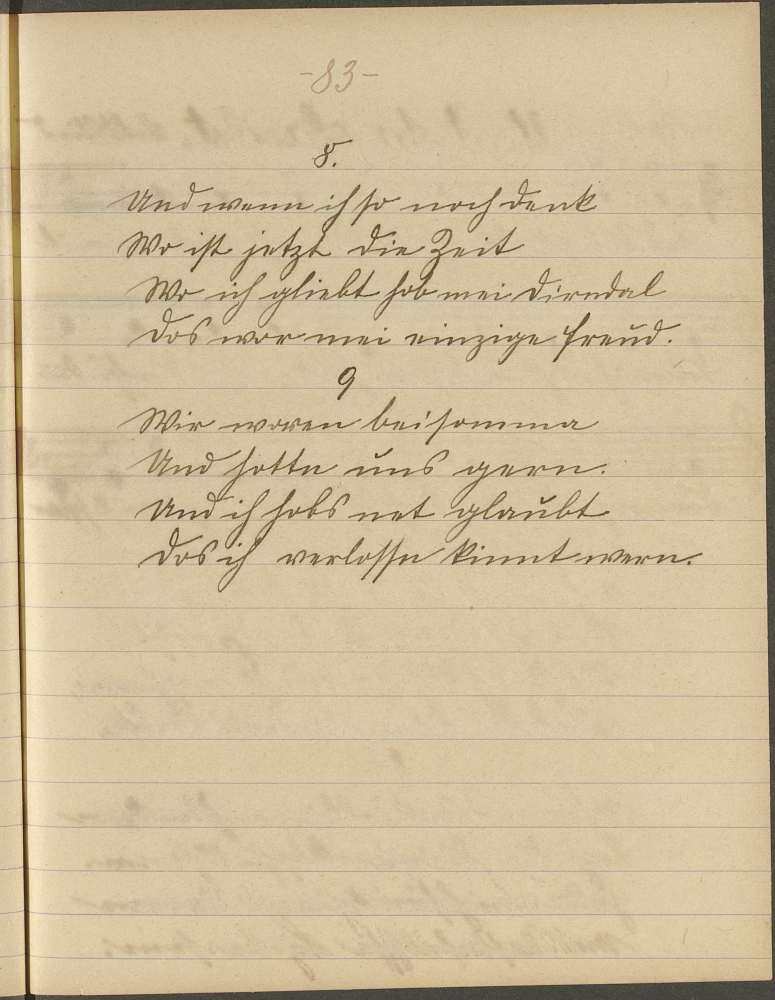 -83-
8.
Und wenn ich so noch denk
Wo ist jetzt die Zeit
Wo ich gliebt hob mei Dirndal
Dos wor mei einzige Freud.
9
Wir woren beisomma
Und hottn uns gern.
Und ich hobs net glaubt
Dos ich verlossn kinnt wern.